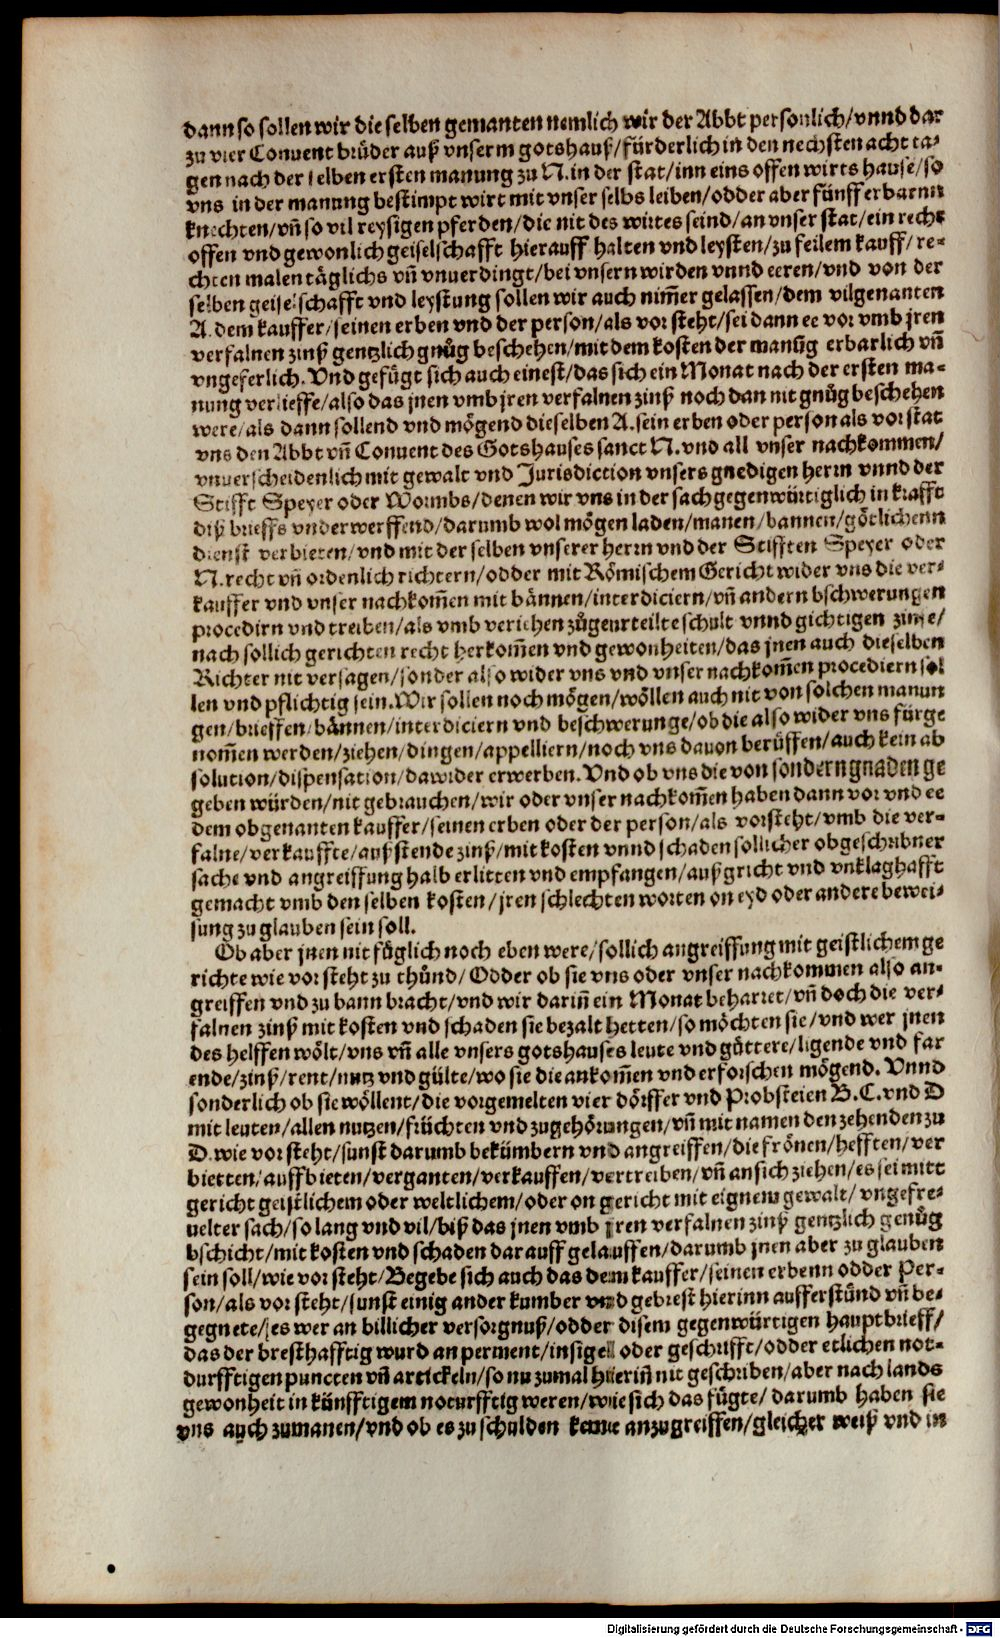 dann so sollen wir die selben gemanten nemlich wir der Abbt personlich/vnnd dar
zu vier Conuent brüder auß vnserm gotshauß/fürderlich in den nechsten acht ta-
gen nach der selben ersten manung zu N. in der stat/inn eins offen wirts hause/so
vns in der manung bestimpt wirt mit vnser selbs leiben/odder aber fünff erbarnn
knechten/vñ so vil reysigen pferden/die nit des wirtes seind/an vnser stat/ein recht
offen vnd gewonlich geiselschafft hierauff halten vnd leysten/zu feilem kauff/re-
chten malen täglichs vñ vnuerdingt/bei vnsern wirden vnnd eeren/vnd von der
selben geiselschafft vnd leystung sollen wir auch nim̃er gelassen/dem vilgenanten
A. dem kauffer/seinen erben vnd der person/als vor steht/sei dann ee vor vmb jren
verfalnen zinß gentzlich gnůg beschehen/mit dem kosten der manũg erbarlich vñ
vngeferlich. Vnd gefügt sich auch einest/das sich ein Monat nach der ersten ma-
nung verlieffe/also das jnen vmb jren verfalnen zinß noch dan nit gnůg beschehen
were/als dann sollend vnd mögend dieselben A. sein erben oder person als vor stat
vns den Abbt vñ Conuent des Gotshauses sanct N. vnd all vnser nachkommen/
vnuerscheidenlich mit gewalt vnd Jurisdiction vnsers gnedigen herrn vnnd der
Stifft Speyer oder Wormbs/denen wir vns in der sach gegenwürtiglich in krafft
diß brieffs vnderwerffend/darumb wol mögen laden/manen/bannen/götlichenn
dienst verbieten/vnd mit der selben vnserer herrn vnd der Stifften Speyer oder
N. recht vñ ordenlich richtern/odder mit Römischem Gericht wider vns die ver-
kauffer vnd vnser nachkom̃en mit bännen/interdiciern/vñ andern bschwerungen
procedirn vnd treiben/als vmb veriehen zůgeurteilte schult vnnd gichtigen zinse/
nach sollich gerichten recht herkom̃en vnd gewonheiten/das jnen auch dieselben
Richter nit versagen/sonder also wider vns vnd vnser nachkom̃en procediern söl
len vnd pflichtig sein. Wir sollen noch mögen/wöllen auch nit von solchen manun
gen/brieffen/bännen/interdiciern vnd beschwerunge/ob die also wider vns fürge
nom̃en werden/ziehen/dingen/appelliern/noch vns dauon berůffen/auch kein ab
solution/dispensation/dawider erwerben. Vnd ob vns die von sondern gnaden ge
geben würden/nit gebrauchen/wir oder vnser nachkom̃en haben dann vor vnd ee
dem obgenanten kauffer/seinen erben oder der person/als vorsteht/vmb die ver-
falne/verkauffte/außstende zinß/mit kosten vnnd schaden sollicher obgeschribner
sache vnd angreiffung halb erlitten vnd empfangen/außgricht vnd vnklaghafft
gemacht vmb den selben kosten/jren schlechten worten on eyd oder andere bewei-
sung zu glauben sein soll.
Ob aber jnen nit füglich noch eben were/sollich angreiffung mit geistlichem ge
richte wie vor steht zu thůnd/Odder ob sie vns oder vnser nachkommen also an-
greiffen vnd zu bann bracht/vnd wir darin̄ ein Monat beharret/vñ doch die ver-
falnen zinß mit kosten vnd schaden sie bezalt hetten/so möchten sie/vnd wer jnen
des helffen wölt/vns vñ alle vnsers gotshauses leute vnd güttere/ligende vnd far
ende/zinß/rent/nutz vnd gülte/wo sie die ankom̃en vnd erforschen mögend. Vnnd
sonderlich ob sie wöllent/die vorgemelten vier dörffer vnd Probsteien B. C. vnd D
mit leuten/allen nutzen/früchten vnd zugehörungen/vñ mit namen den zehenden zu
D. wie vor steht/sunst darumb bekümbern vnd angreiffen/die frönen/hefften/ver
bietten/auffbieten/verganten/verkauffen/vertreiben/vñ an sich ziehen/es sei mitt
gericht geistlichem oder weltlichem/oder on gericht mit eignem gewalt/vngefre-
uelter sach/so lang vnd vil/biß das jnen vmb jren verfalnen zinß gentzlich genůg
bschicht/mit kosten vnd schaden darauff gelauffen/darumb jnen aber zu glauben
sein soll/wie vor steht/Begebe sich auch das dem kauffer/seinen erbenn odder Per-
son/als vor steht/sunst einig ander kumber vnnd gebrest hierinn aufferstünd vñ be-
gegnete/es wer an billicher versorgnuß/odder disem gegenwürtigen hauptbrieff/
das der bresthafftig wurd an perment/insigel oder geschrifft/odder etlichen not-
durfftigen puncten vñ artickeln/so nu zumal hierin̄ nit geschriben/aber nach lands
gewonheit in künfftigem noturfftig weren/wie sich das fügte/darumb haben sie
vns auch zumanen/vnd ob es zu schulden keme anzugreiffen/gleicher weiß vnd in
Digitalisierung gefördert durch die Deutsche Forschungsgemeinschaft - DFG